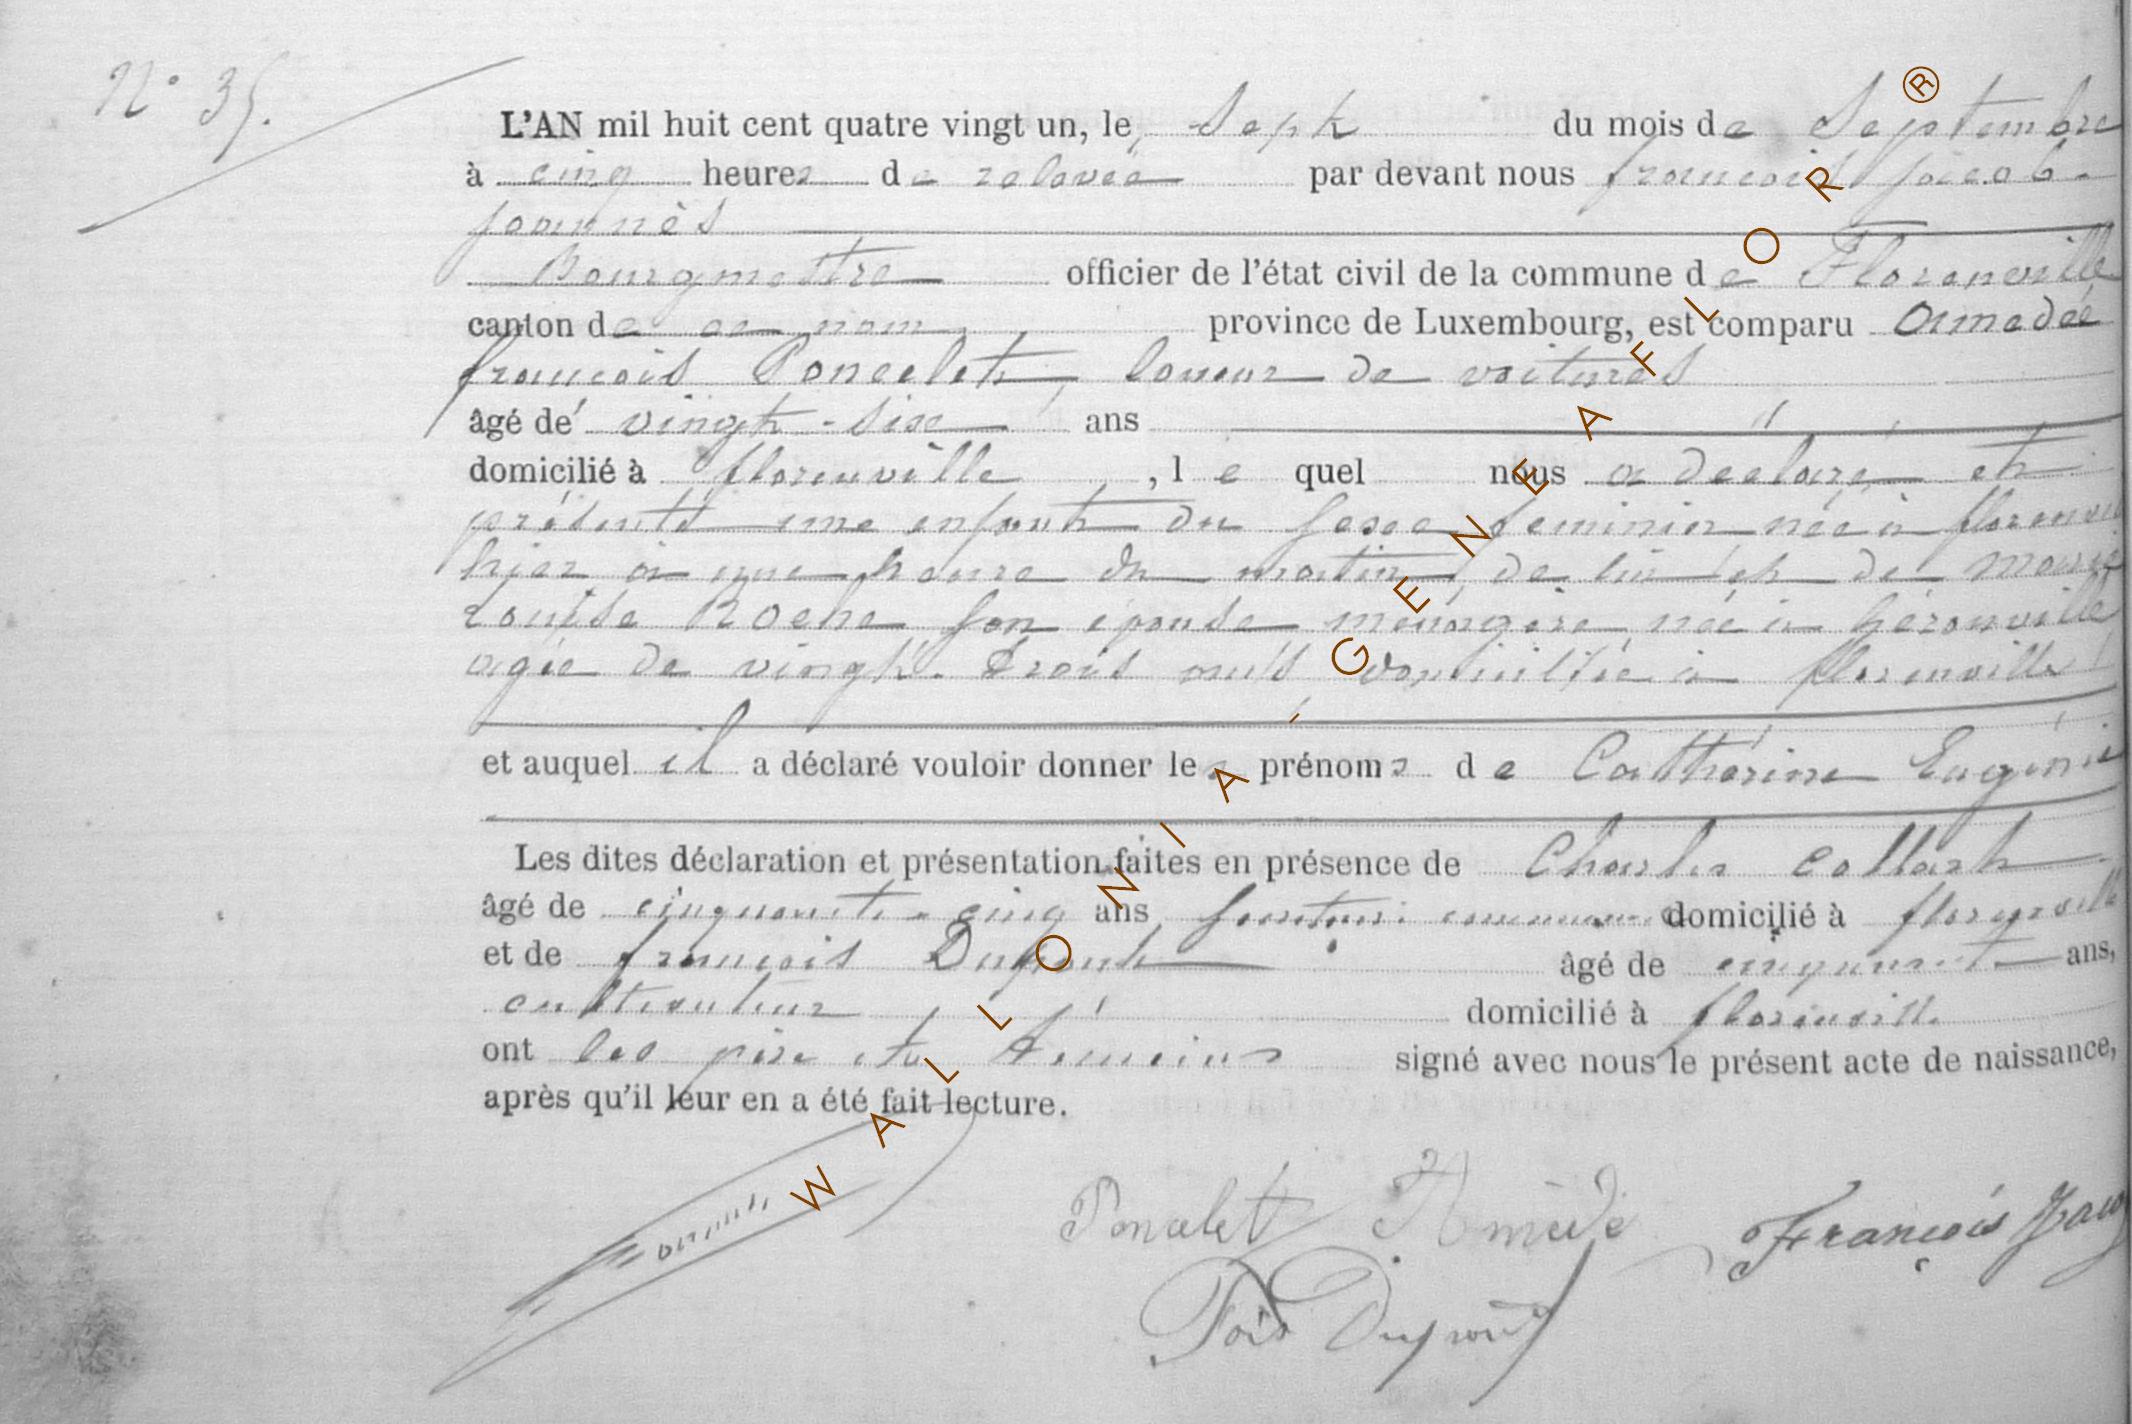 N° 35.
L'AN mil huit cent quatre vingt un, le Sept du mois de Septembre
à cinq heures de relevée par devant nous françois Jacob
Joannès
Bourgmestre officier de l'état civil de la commune de Florenville
canton de ce nom, province de Luxembourg, est comparu Amedée
françois Poncelet, loueur de voitures
âgé de vingt-six ans
domicilié à florenville, le quel nous a déclaré et
présenté une enfant du sexe feminin née à florenvil
hier à une heure du matin, de lui et de Marie
Louise Roche son épouse ménagère née à Gérouville
agée de vingt-trois ans, domiciliée à florenville
et auquel il a déclaré vouloir donner les prénoms de Catthérine Eugénie
Les dites déclaration et présentation faites en présence de Charles Collart
âgé de cinquante-cinq ans domicilié à florenville
et de françois Dupont âgé de cinquante ans,
cultivateur domicilié à florenville
ont les père et témoins signé avec nous le présent acte de naissance,
après qu'il leur en a été fait lecture.
Poncelet Amédé François Jacob
Fois Dupont
WALLONIA - GENEAFLOR ®